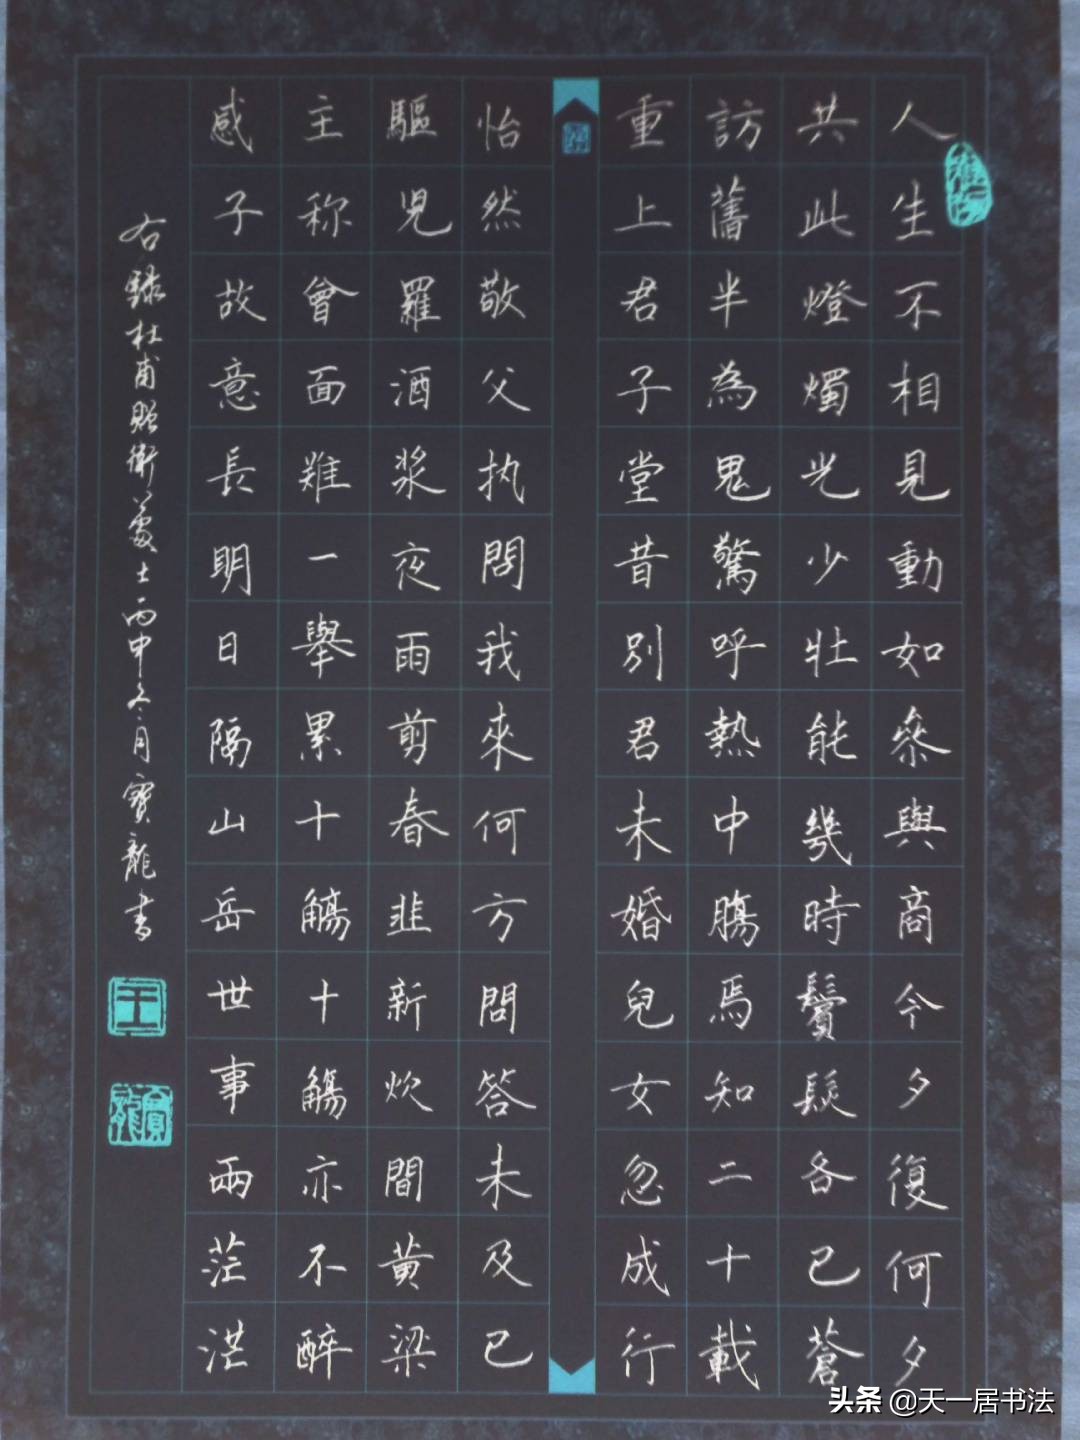 人生不相見動如參與商今夕復何夕
共此燈燭光少壯能幾時鬢髮各已蒼
訪舊半為鬼驚呼熱中腸焉知二十載
重上君子堂昔別君未婚兒女忽成行
怡然敬父执問我來何方問答未及已
驅児羅酒浆夜雨剪春韭新炊間黃梁
主称會面難一舉累十觴十觴亦不醉
感子故意長明日隔山岳世事兩茫茫
右錄杜甫贈衛八處士丙申冬月寶龍書
王
寶龍
头条 @天一居书法